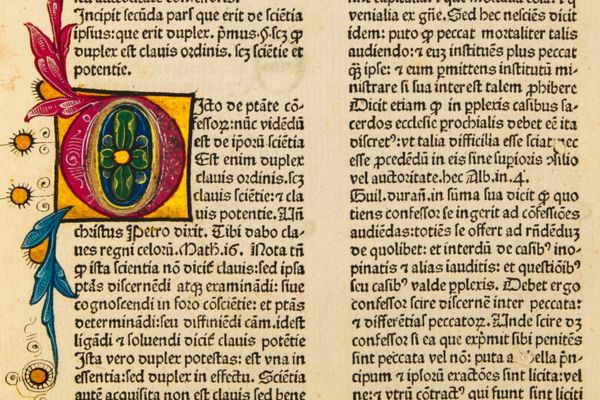 Incipit secūda pars que erit de sciētia
ipsius: que erit duplex. p̄mus. ꝙ
duplex est clauis ordinis. scꝫ sciētie et
potentie.
Dicto de ptāte cō-
fessoꝝ: nūc vidēdū
est de ipoꝝ sciētia
Est enim duplex
clauis ordinis. scꝫ
clauis sciētie: ⁊ cla
uis potentie. Uñ
christus Petro dixit. Tibi dabo cla-
ues regni celoꝝ. Math. 16. Nota tñ
ꝙ ista scientia nō dicit̉ clauis: sed ipsa
ptās discernēdi atqꝫ examinādi: siue
cognoscendi in foro cōsciētie: et ptās
determinādi: seu diffiniēdi cām. idest
ligādi ⁊ soluendi dicit̉ clauis potētie
Ista vero duplex potestas: est vna in
essentia: sed duplex in effectu. Sciētia
autē acquisita non est clauis sed bene
venialia ex gñe. Sed hec nesciēs dicit
idem: puto ꝙ peccat mortaliter talis
audiendo: ⁊ eūꝫ instituēs plus peccat
q̄ꝫ ipse: ⁊ eum pmittens institutū mi-
nistrare si sua interest talem ꝓhibere
Dicit etiam ꝙ in pplexis casibus sa-
cerdos ecclesie prochialis debet eē ita
discretꝰ: vt talia difficilia esse sciat nec
esse ꝓcedēdū in eis sine supioris ꝯsilio
vel auctoritate. hec Alb. in. 4.
Guil. durañ. in sūma sua dicit ꝙ quo
tiens confessor se ingerit ad cōfessiōes
audiēdas: totiēs se offert ad rñdēduꝫ
de quolibet: et interdū de casibꝰ ino-
pinatis ⁊ alias iauditis: et questiōibꝰ
seu casibꝰ valde pplexis. Debet ergo
cōfessor scire discernē inter peccata:
⁊ differētias peccatoꝝ. Unde scire dꝫ
confessor si ea que expmit sibi penitēs
sint peccata vel nō: puta a p̄n-
cipum ⁊ ipsorū exactōes sint licita: vel
ne: ⁊ vtrū cōtractꝰ qui fiunt sint liciti